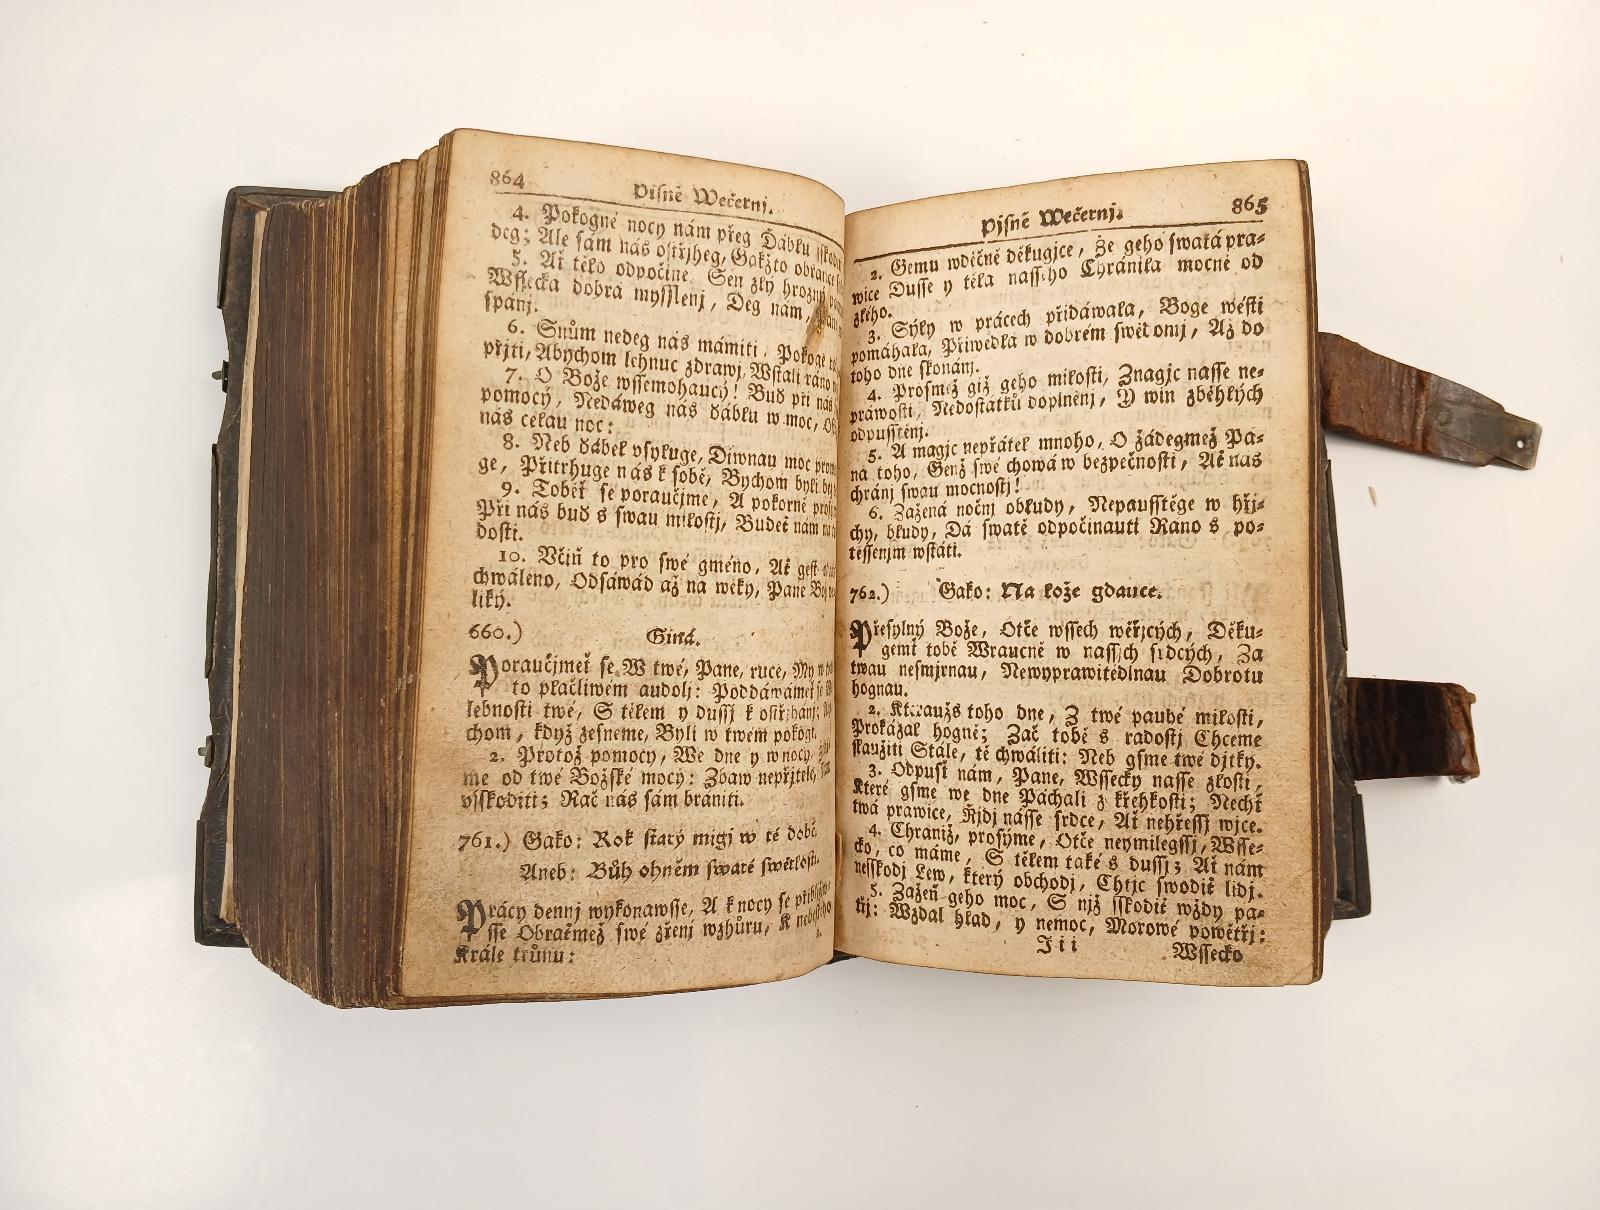 864
Pjsně Wečernj.
4. Pokogné nocy nám přeg Ďáblu
deg; Ale sám nás ostřjheg, Gakžto obrance
5. Ať tělo odpočine Sen zlý hrozný
Wssecka dobrá mysslenj, Deg nám,
spánj.
6. Snům nedeg nás mámiti, Pokoge
přjti, Abychom lehnuc zdrawj, Wstali ráno
7. O Bože wssemohaucý! Buď při nás
pomocý, Nedáweg nás ďáblu w moc,
nás celau noc:
8. Neb ďábel vsyluge, Diwnau moc
ge, Přitrhuge nás k sobě, Bychom byli
9. Toběť se poraučjme, A pokorně
Při nás buď s swau milostj, Budeť nám
dosti.
10. Včiň to pro swé gméno, Ať gest
chwáleno, Odsáwád až na wěky, Pane
liký.
660.) Giná.
Poraučjmeť se W twé, Pane, ruce, My
to plačliwém audolj: Poddáwámeť se
lebnosti twé, S tělem y dussj k ostřjhánj;
chom, když zesneme, Byli w twém pokogi.
2. Protož pomocy, We dne y w nocy,
me od twé Božské mocy: Zbaw nepřjtele,
vsskoditi; Rač nás sám brániti.
761.) Gako: Rok starý migj w té době,
Aneb: Bůh ohněm swaté swětlosti.
Prácy dennj wykonawsse, A k nocy se
sse Obraťmež swé zřenj wzhůru, K
Krále trůnu:
Pjsně Wečernj.
865
2. Gemu wděčně děkugjce, Že geho swatá pra-
wice Dusse y těla nasseho Chránila mocně od
zlého.
3. Sýly w prácech přidáwala, Boge wésti
pomáhala, Přiwedla w dobrém swětlonj, Až do
toho dne skonánj.
4. Prosmež giž geho milosti, Znagjc nasse ne-
práwosti, Nedostatků doplněnj, Y win zběhlých
odpusstěnj.
5. A magjc nepřátel mnoho, O žádegmež Pá-
na toho, Genž swé chowá w bezpečnosti, Ať nás
chránj swau mocnostj!
6. Zažená nočnj obludy, Nepausstěge w hřj-
chy, bludy, Dá swatě odpočinauti Ráno s po-
těssenjm wstáti.
762.) Gako: Na lože gdauce.
Přesylný Bože, Otče wssech wěřjcých, Děku-
gemť tobě Wraucně w nassjch srdcých, Za
twau nesmjrnau, Newyprawitedlnau Dobrotu
hognau.
2. Kteraužs toho dne, Z twé pauhé milosti,
Prokázal hogně; Zač tobě s radostj Chceme
slaužiti Stále, tě chwáliti: Neb gsme twé djtky.
3. Odpusť nám, Pane, Wssecky nasse zlosti,
Které gsme we dne Páchali z křehkosti; Nechť
twá prawice, Řjdj násse srdce, Ať nehřessj wjce.
4. Chrániž, prosýme, Otče neymilegssj, Wsse-
cko, co máme, S tělem také s dussj; Ať nám
nesskodj Lew, který obchodj, Chtjc swodiť lidj.
5. Zažeň geho moc, S njž sskodiť wždy pa-
třj: Wzdal hlad, y nemoc, Morowé powětřj:
Iii
Wssecko